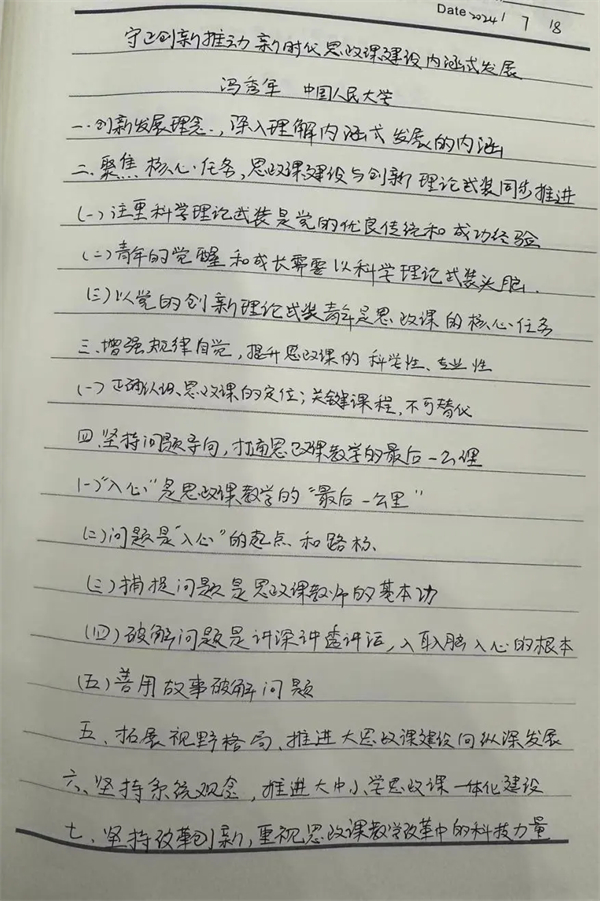 Date 2024/7/8
守正创新推动新时代思政课建设内涵式发展
冯秀军 中国人民大学
一.创新发展理念.,深入理解内涵式发展的内涵
二.聚焦核心任务,思政课建设与创新理论武装同步推进
(一)注重科学理论武装是党的优良传统和成功经验
(二)青年的觉醒和成长需要以科学理论武装头脑.
(三)以党的创新理论武装青年是思政课的核心任务
三.增强规律自觉,提升思政课的科学性、专业性
(一)正确认识思政课的定位;关键课程,不可替代
四.坚持问题导向,打通思政课教学的最后一公里
(一)"入心"是思政课教学的"最后一公里"
(二)问题是"入心"的起点和路标.
(三)捕捉问题是思政课教师的基本功
(四)破解问题是讲深讲透讲活,入耳入脑入心的根本
(五)善用故事破解问题
五、拓展视野格局、推进大思政课建设向纵深发展
六、坚持系统观念,推进大中小学思政课一体化建设
七、坚持改革创新,重视思政课教学改革中的科技力量